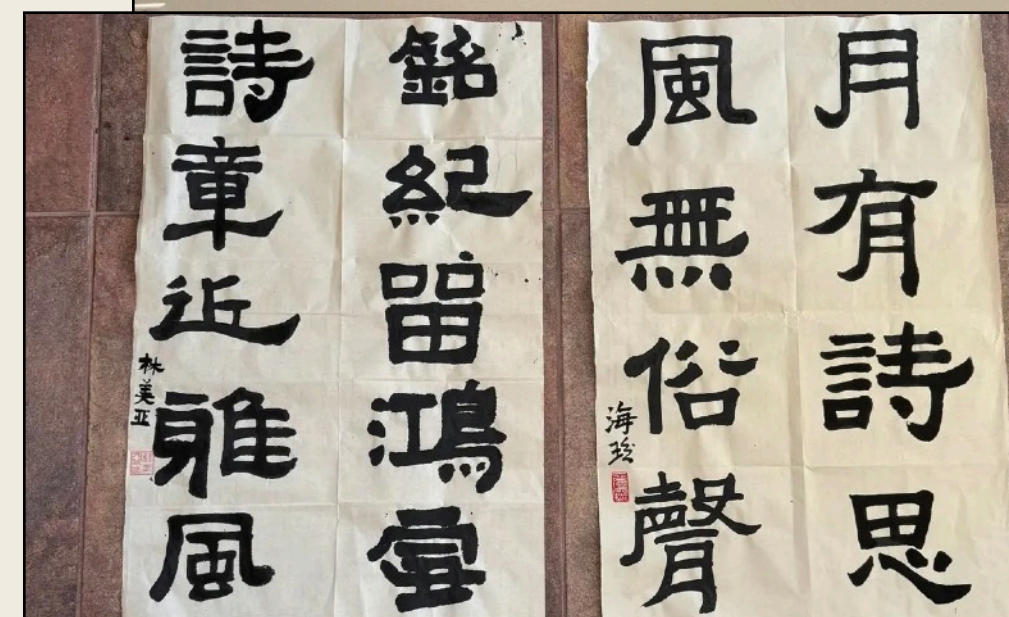 月有詩思
風無俗聲
海
銘紀留鴻
詩章近雅風
林美亚